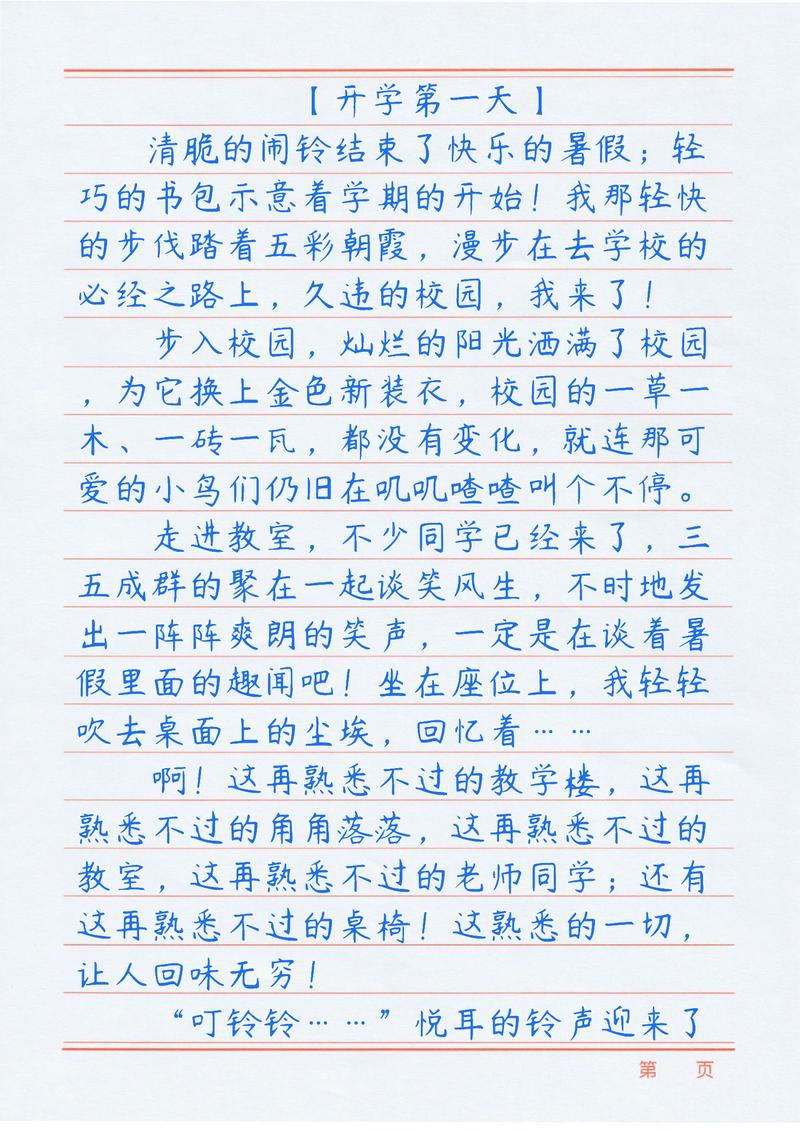 【开学第一天】
清脆的闹铃结束了快乐的暑假；轻
巧的书包示意着学期的开始！我那轻快
的步伐踏着五彩朝霞，漫步在去学校的
必经之路上，久违的校园，我来了！
步入校园，灿烂的阳光洒满了校园
，为它换上金色新装衣，校园的一草一
木、一砖一瓦，都没有变化，就连那可
爱的小鸟们仍旧在叽叽喳喳叫个不停。
走进教室，不少同学已经来了，三
五成群的聚在一起谈笑风生，不时地发
出一阵阵爽朗的笑声，一定是在谈着暑
假里面的趣闻吧！坐在座位上，我轻轻
吹去桌面上的尘埃，回忆着……
啊！这再熟悉不过的教学楼，这再
熟悉不过的角角落落，这再熟悉不过的
教室，这再熟悉不过的老师同学；还有
这再熟悉不过的桌椅！这熟悉的一切，
让人回味无穷！
“叮铃铃……”悦耳的铃声迎来了
第 页